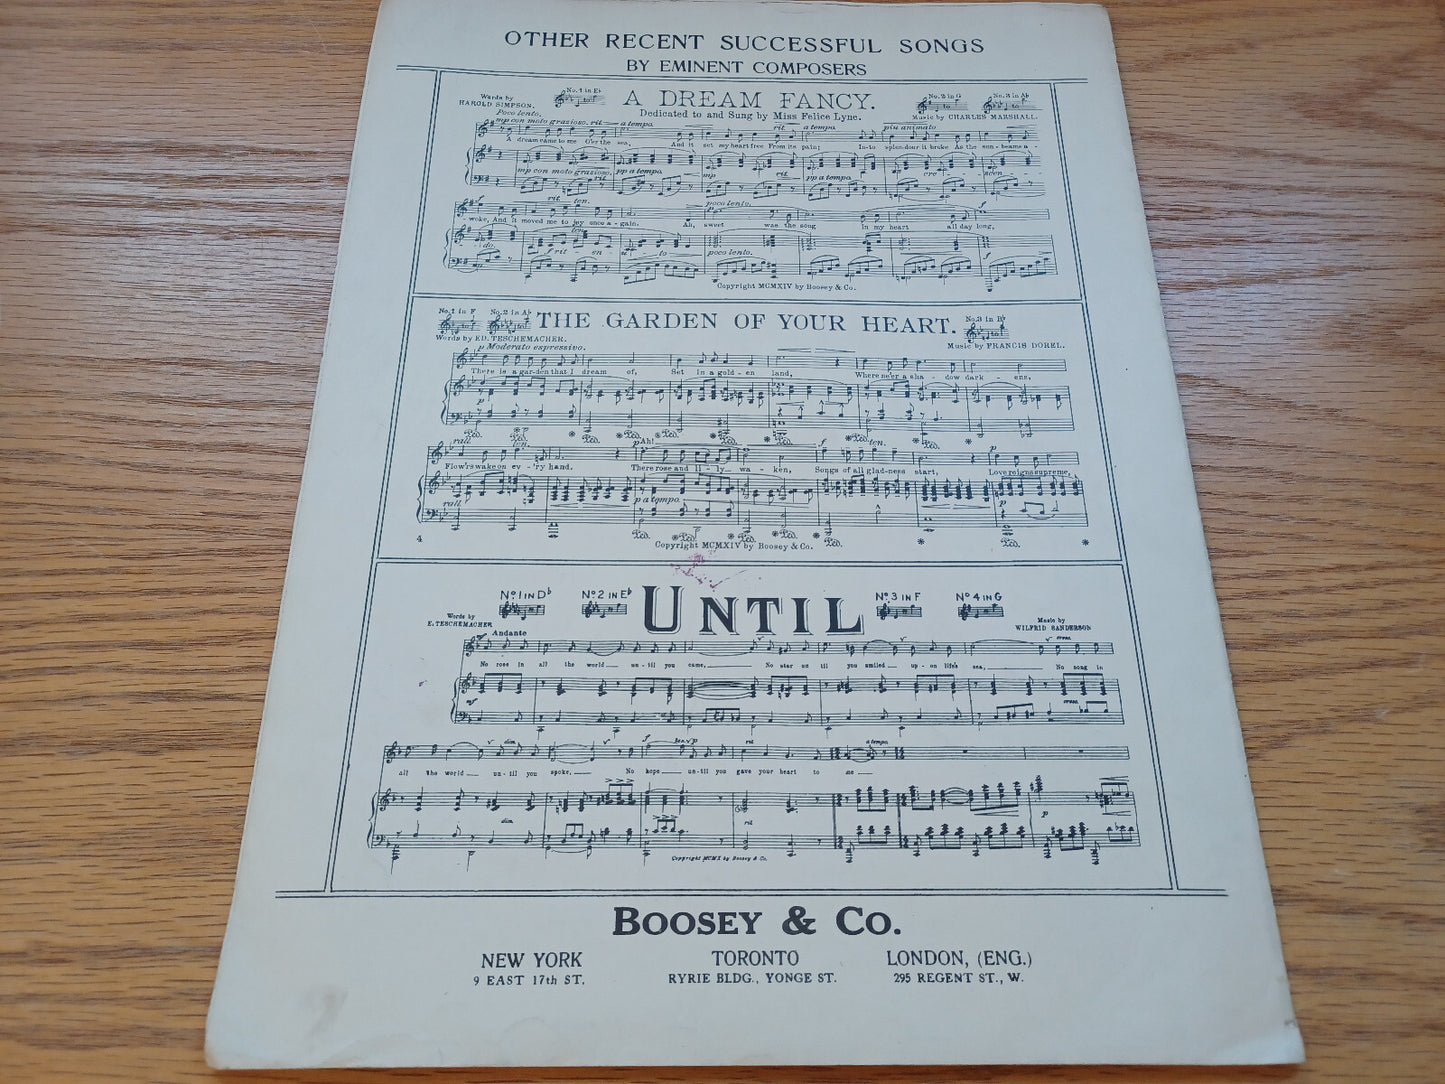 OTHER RECENT SUCCESSFUL SONGS
BY EMINENT COMPOSERS
Words by
HAROLD SIMPSON.
No. 1 in E♭
A DREAM FANCY.
Dedicated to and Sung by Miss Felice Lyne.
No. 2 in G
No. 3 in A♭
Music by CHARLES MARSHALL.
Poco lento.
mp con moto grazioso. rit a tempo. rit a tempo. piu animato
A dream came to me O'er the sea, And it set my heart free From its pain; In-to splen-dour it broke As the sun-beams a-
mp con moto grazioso. pp a tempo. mp rit. pp a tempo. cre scen
f rit ten. p poco lento. f
woke, And it moved me to joy once a-gain. Ah, sweet was the song In my heart all day long,
do. f rit en u to poco lento.
Copyright MCMXIV by Boosey & Co.
No. 1 in F
No. 2 in A♭
THE GARDEN OF YOUR HEART.
No. 3 in B♭
Words by ED. TESCHEMACHER.
Music by FRANCIS DOREL.
p Moderato espressivo.
There is a gar-den that I dream of, Set in a gold-en land, Where ne'er a sha-dow dark-ens,
p
Ped. * p Ped. * Ped. * Ped. * Ped. * Ped. * Ped. *
rall. ten. p Ah! f ten. p
Flow'rs wake on ev-'ry hand. There rose and lil-y wa-ken, Songs of all glad-ness start, Love reigns supreme,
rall. p a tempo. p
4
Copyright MCMXIV by Boosey & Co.
No. 1 IN D♭
No. 2 IN E♭
UNTIL
No. 3 IN F
No. 4 IN G
Words by
E. TESCHEMACHER
Music by
WILFRID SANDERSON
Andante
cresc.
No rose in all the world un-til you came, No star un til you smiled up-on life's sea, No song in
mf cresc.
dim. f p rit a tempo
all the world un-til you spoke, No hope un-til you gave your heart to me
dim. rit p
Copyright MCMX by Boosey & Co.
BOOSEY & CO.
NEW YORK TORONTO LONDON, (ENG.)
9 EAST 17th ST. RYRIE BLDG., YONGE ST. 295 REGENT ST., W.